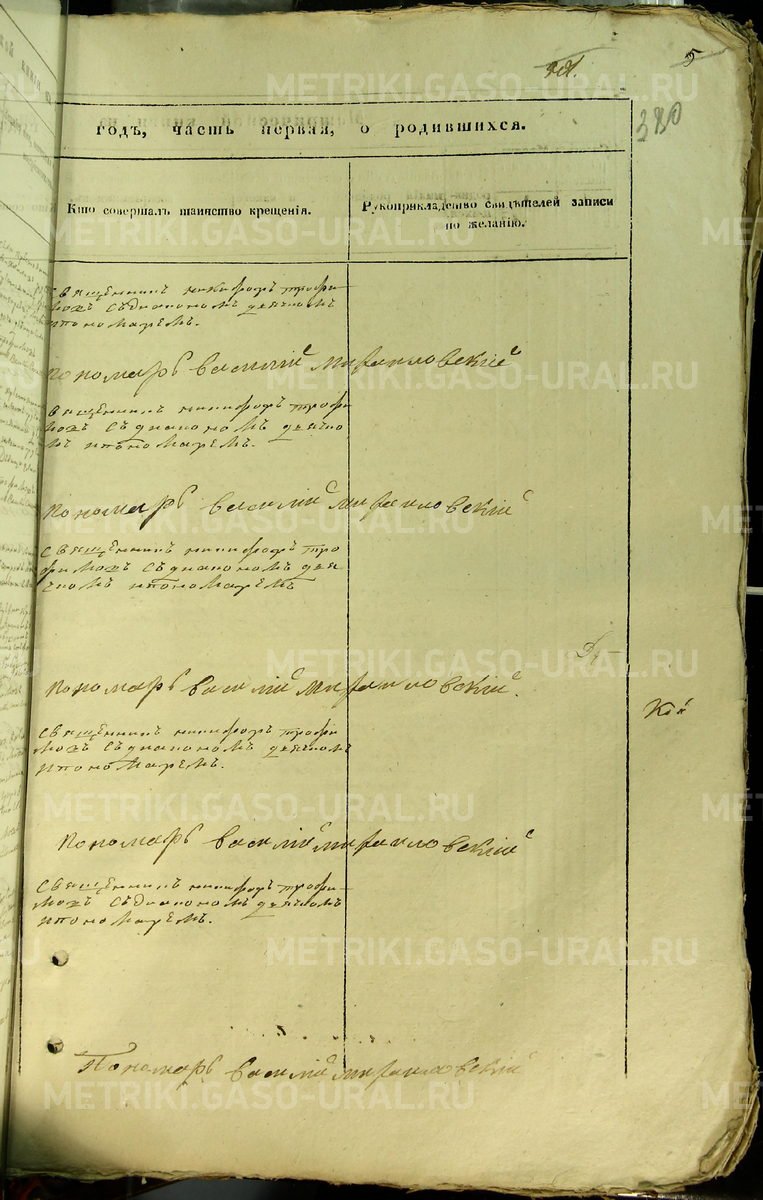 5
380
годъ, часть первая, о родившихся.
Кто совершалъ таинство крещенія.
Рукоприкладство свидѣтелей записи
по желанію.
священникъ никифоръ трофи
мовъ съ диакономъ дьячкомъ
ипономаремъ.
пономарь василій михайловскій
священникъ никифоръ трофи
мовъ съ диакономъ дьячко
мъ ипономаремъ.
пономарь василій михайловскій
священникъ никифоръ тро
фимовъ съ диакономъ дья
чкомъ ипономаремъ
пономарь василій михайловскій.
священникъ никифоръ трофи
мовъ съ диакономъ дьячкомъ
ипономаремъ.
пономарь василій михайловскій
священникъ никифоръ трофи
мовъ съ диакономъ дьячкомъ
ипономаремъ.
Пономарь василій михайловскій
METRIKI.GASO-URAL.RU